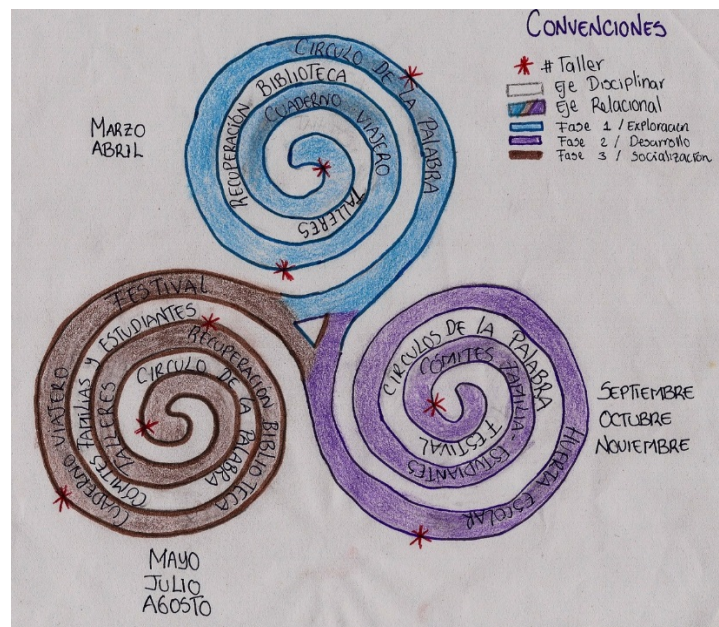 CONVENCIONES
# Taller
Eje Disciplinar
Eje Relacional
Fase 1 / Exploración
Fase 2 / Desarrollo
Fase 3 / Socialización
MARZO
ABRIL
CÍRCULO DE LA PALABRA
RECUPERACIÓN BIBLIOTECA
CUADERNO VIAJERO
TALLERES
FESTIVAL
CUADERNO VIAJERO
COMITES FAMILIAS Y ESTUDIANTES
TALLERES
RECUPERACIÓN BIBLIOTECA
CIRCULO DE LA PALABRA
MAYO
JULIO
AGOSTO
CIRCULOS DE LA PALABRA
CÓMITES FAMILIA-ESTUDIANTES
FESTIVAL
HUERTA ESCOLAR
SEPTIEMBRE
OCTUBRE
NOVIEMBRE